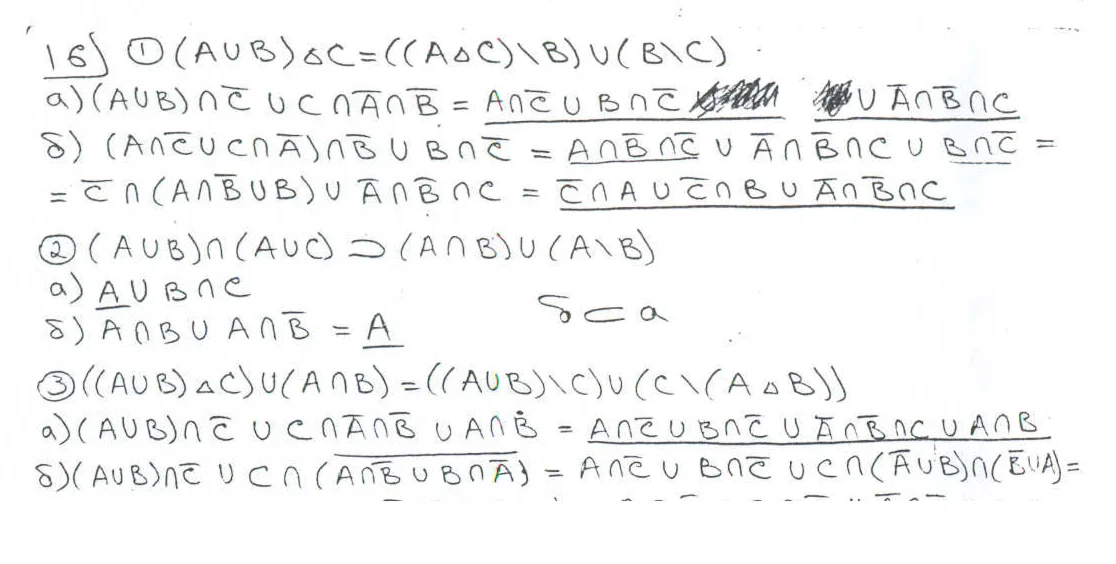 16) ① (A∪B)△C=((A△C)\B)∪(B\C)
а) (A∪B)∩C̅ ∪ C∩A̅∩B̅ = A∩C̅ ∪ B∩C̅ ∪ A̅∩B̅∩C
б) (A∩C̅∪C∩A̅)∩B̅ ∪ B∩C̅ = A∩B̅∩C̅ ∪ A̅∩B̅∩C ∪ B∩C̅ =
= C̅∩(A∩B̅∪B)∪ A̅∩B̅∩C = C̅∩A ∪ C̅∩B ∪ A̅∩B̅∩C
② (A∪B)∩(A∪C) ⊃ (A∩B)∪(A\B)
а) A∪B∩C
б) A∩B∪A∩B̅ = A б⊂а
③ ((A∪B)△C)∪(A∩B)=((A∪B)\C)∪(C\(A△B))
а) (A∪B)∩C̅ ∪ C∩A̅∩B̅ ∪ A∩B = A∩C̅∪B∩C̅∪A̅∩B̅∩C∪A∩B
б) (A∪B)∩C̅ ∪ C∩(̅A̅∩̅B̅̅ ̅∪̅ ̅B̅∩̅A̅̅)̅ = A∩C̅ ∪ B∩C̅ ∪ C∩(A̅∪B)∩(B̅∪A)=